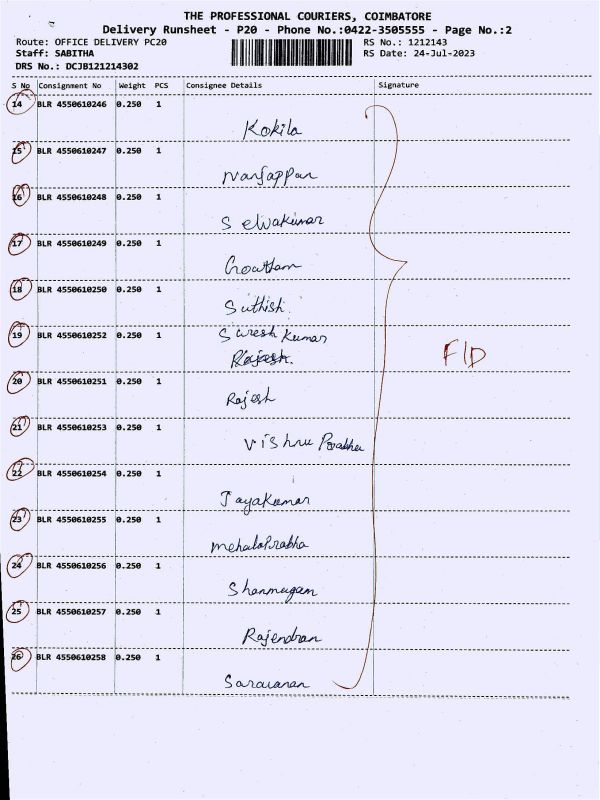 THE PROFESSIONAL COURIERS, COIMBATORE
Delivery Runsheet - P20 - Phone No.:0422-3505555 - Page No.:2
Route: OFFICE DELIVERY PC20 RS No.: 1212143
Staff: SABITHA RS Date: 24-Jul-2023
DRS No.: DCJB121214302
S No Consignment No Weight PCS Consignee Details Signature
14 BLR 4550610246 0.250 1
Kokila
15 BLR 4550610247 0.250 1
Nanjappan
16 BLR 4550610248 0.250 1
Selvakumar
17 BLR 4550610249 0.250 1
Gowtham
18 BLR 4550610250 0.250 1
Suthish
19 BLR 4550610252 0.250 1 Suresh Kumar
Rajesh.
F/D
20 BLR 4550610251 0.250 1
Rajesh
21 BLR 4550610253 0.250 1
Vishnu Prabhu
22 BLR 4550610254 0.250 1
Jayakumar
23 BLR 4550610255 0.250 1
MehalaPrabha
24 BLR 4550610256 0.250 1
Shanmugam
25 BLR 4550610257 0.250 1
Rajendran
26 BLR 4550610258 0.250 1
Saravanan